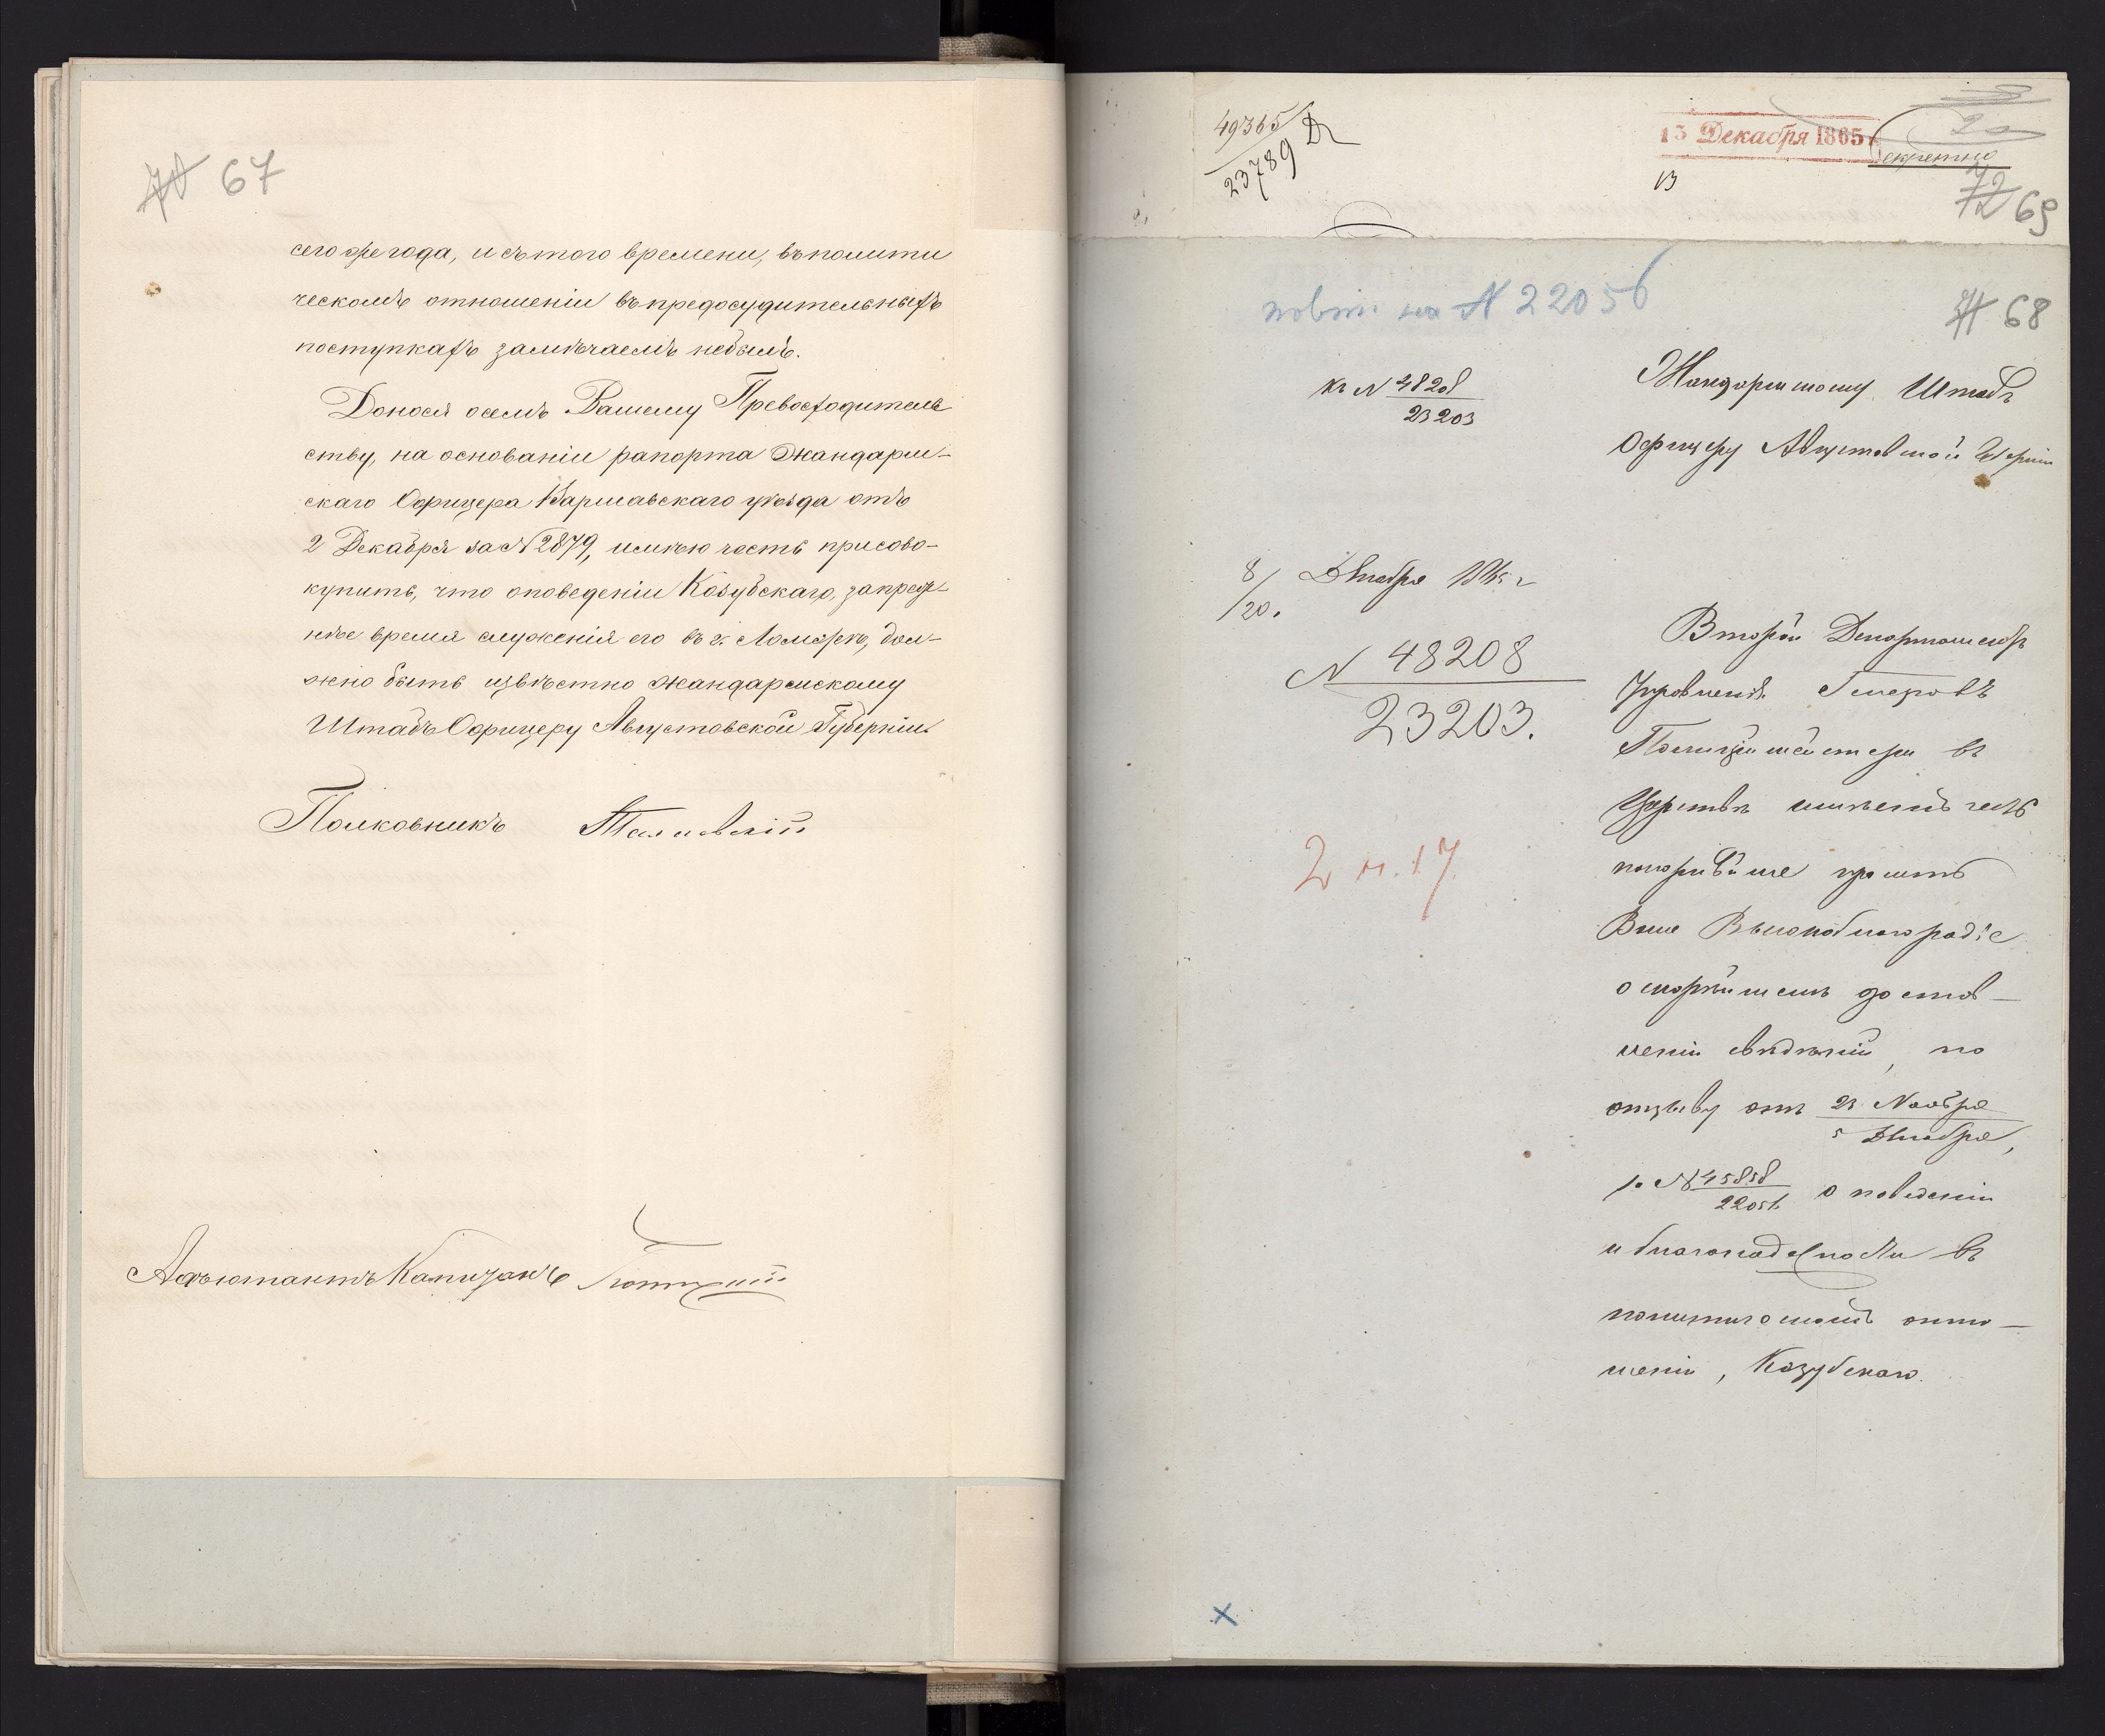 67
сего же года, и съ того времени, въ полити
ческомъ отношеніи въ предосудительныхъ
поступкахъ замѣчаемъ небылъ.
Донося о семъ Вашему Превосходитель
ству, на основаніи рапорта Жандарм-
скаго Офицера Варшавскаго уѣзда отъ
2 Декабря за № 2879, имѣю честь присово-
купить, что о поведеніи Козубскаго, за преж-
нѣе время служенія его въ г. Ломжѣ, дол-
жно быть извѣстно Жандармскому
Штабъ Офицеру Августовской Губерніи.
Полковникъ
Адъютантъ Капитанъ
49365
23789
13 Декабря 1865
Секретно
13
72 69
повт. на № 22056
71 68
къ № 48208
23203
Жандармскому Штабъ
Офицеру Августовской Губерніи
8/20. Декабря 1865 г
№ 48208
23203.
Второй Департаментъ
Управленія Генералъ
Полиціймейстера въ
Царствѣ имѣетъ честь
покорнѣйше просить
Ваше Высокоблагородіе
о скорѣйшемъ достав-
леніи свѣдѣній, по
отзыву отъ 23 Ноября
5 Декабря,
№ 45858
22056 о поведеніи
и благонадежности въ
политическомъ отно-
шеніи, Козубскаго.
2 н. 17